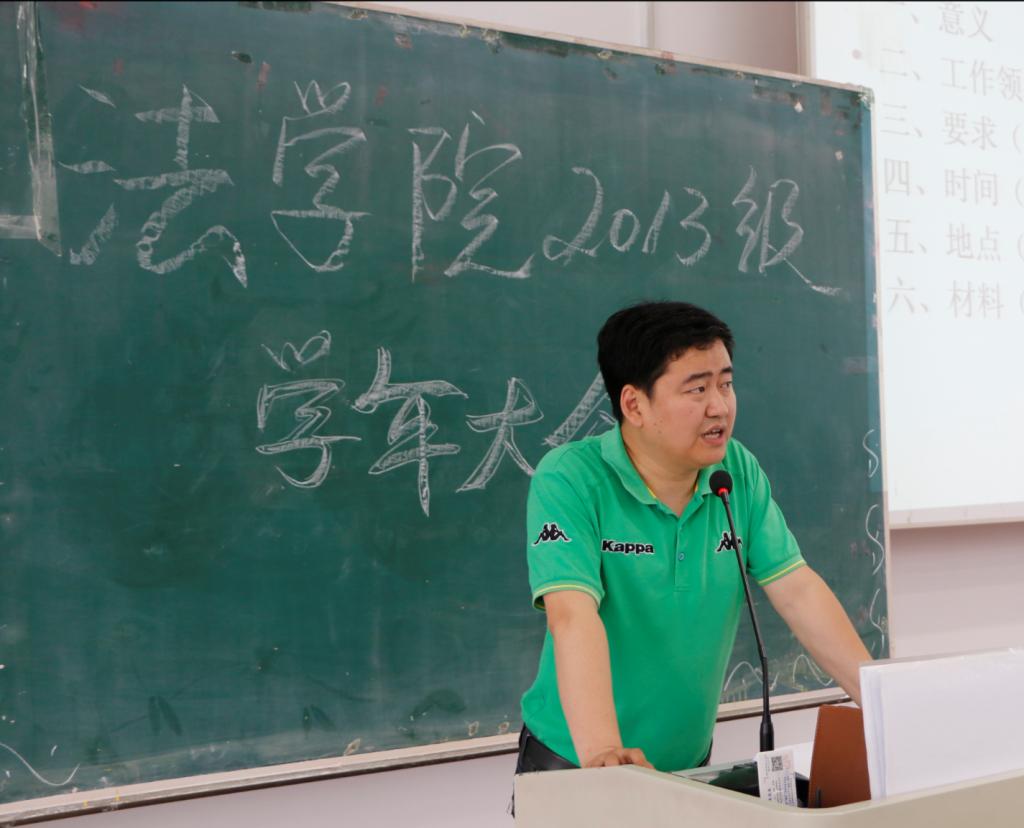 法学院2013级
学年大会
一、意义
二、工作领
三、要求（
四、时间（
五、地点（
六、材料（
Kappa